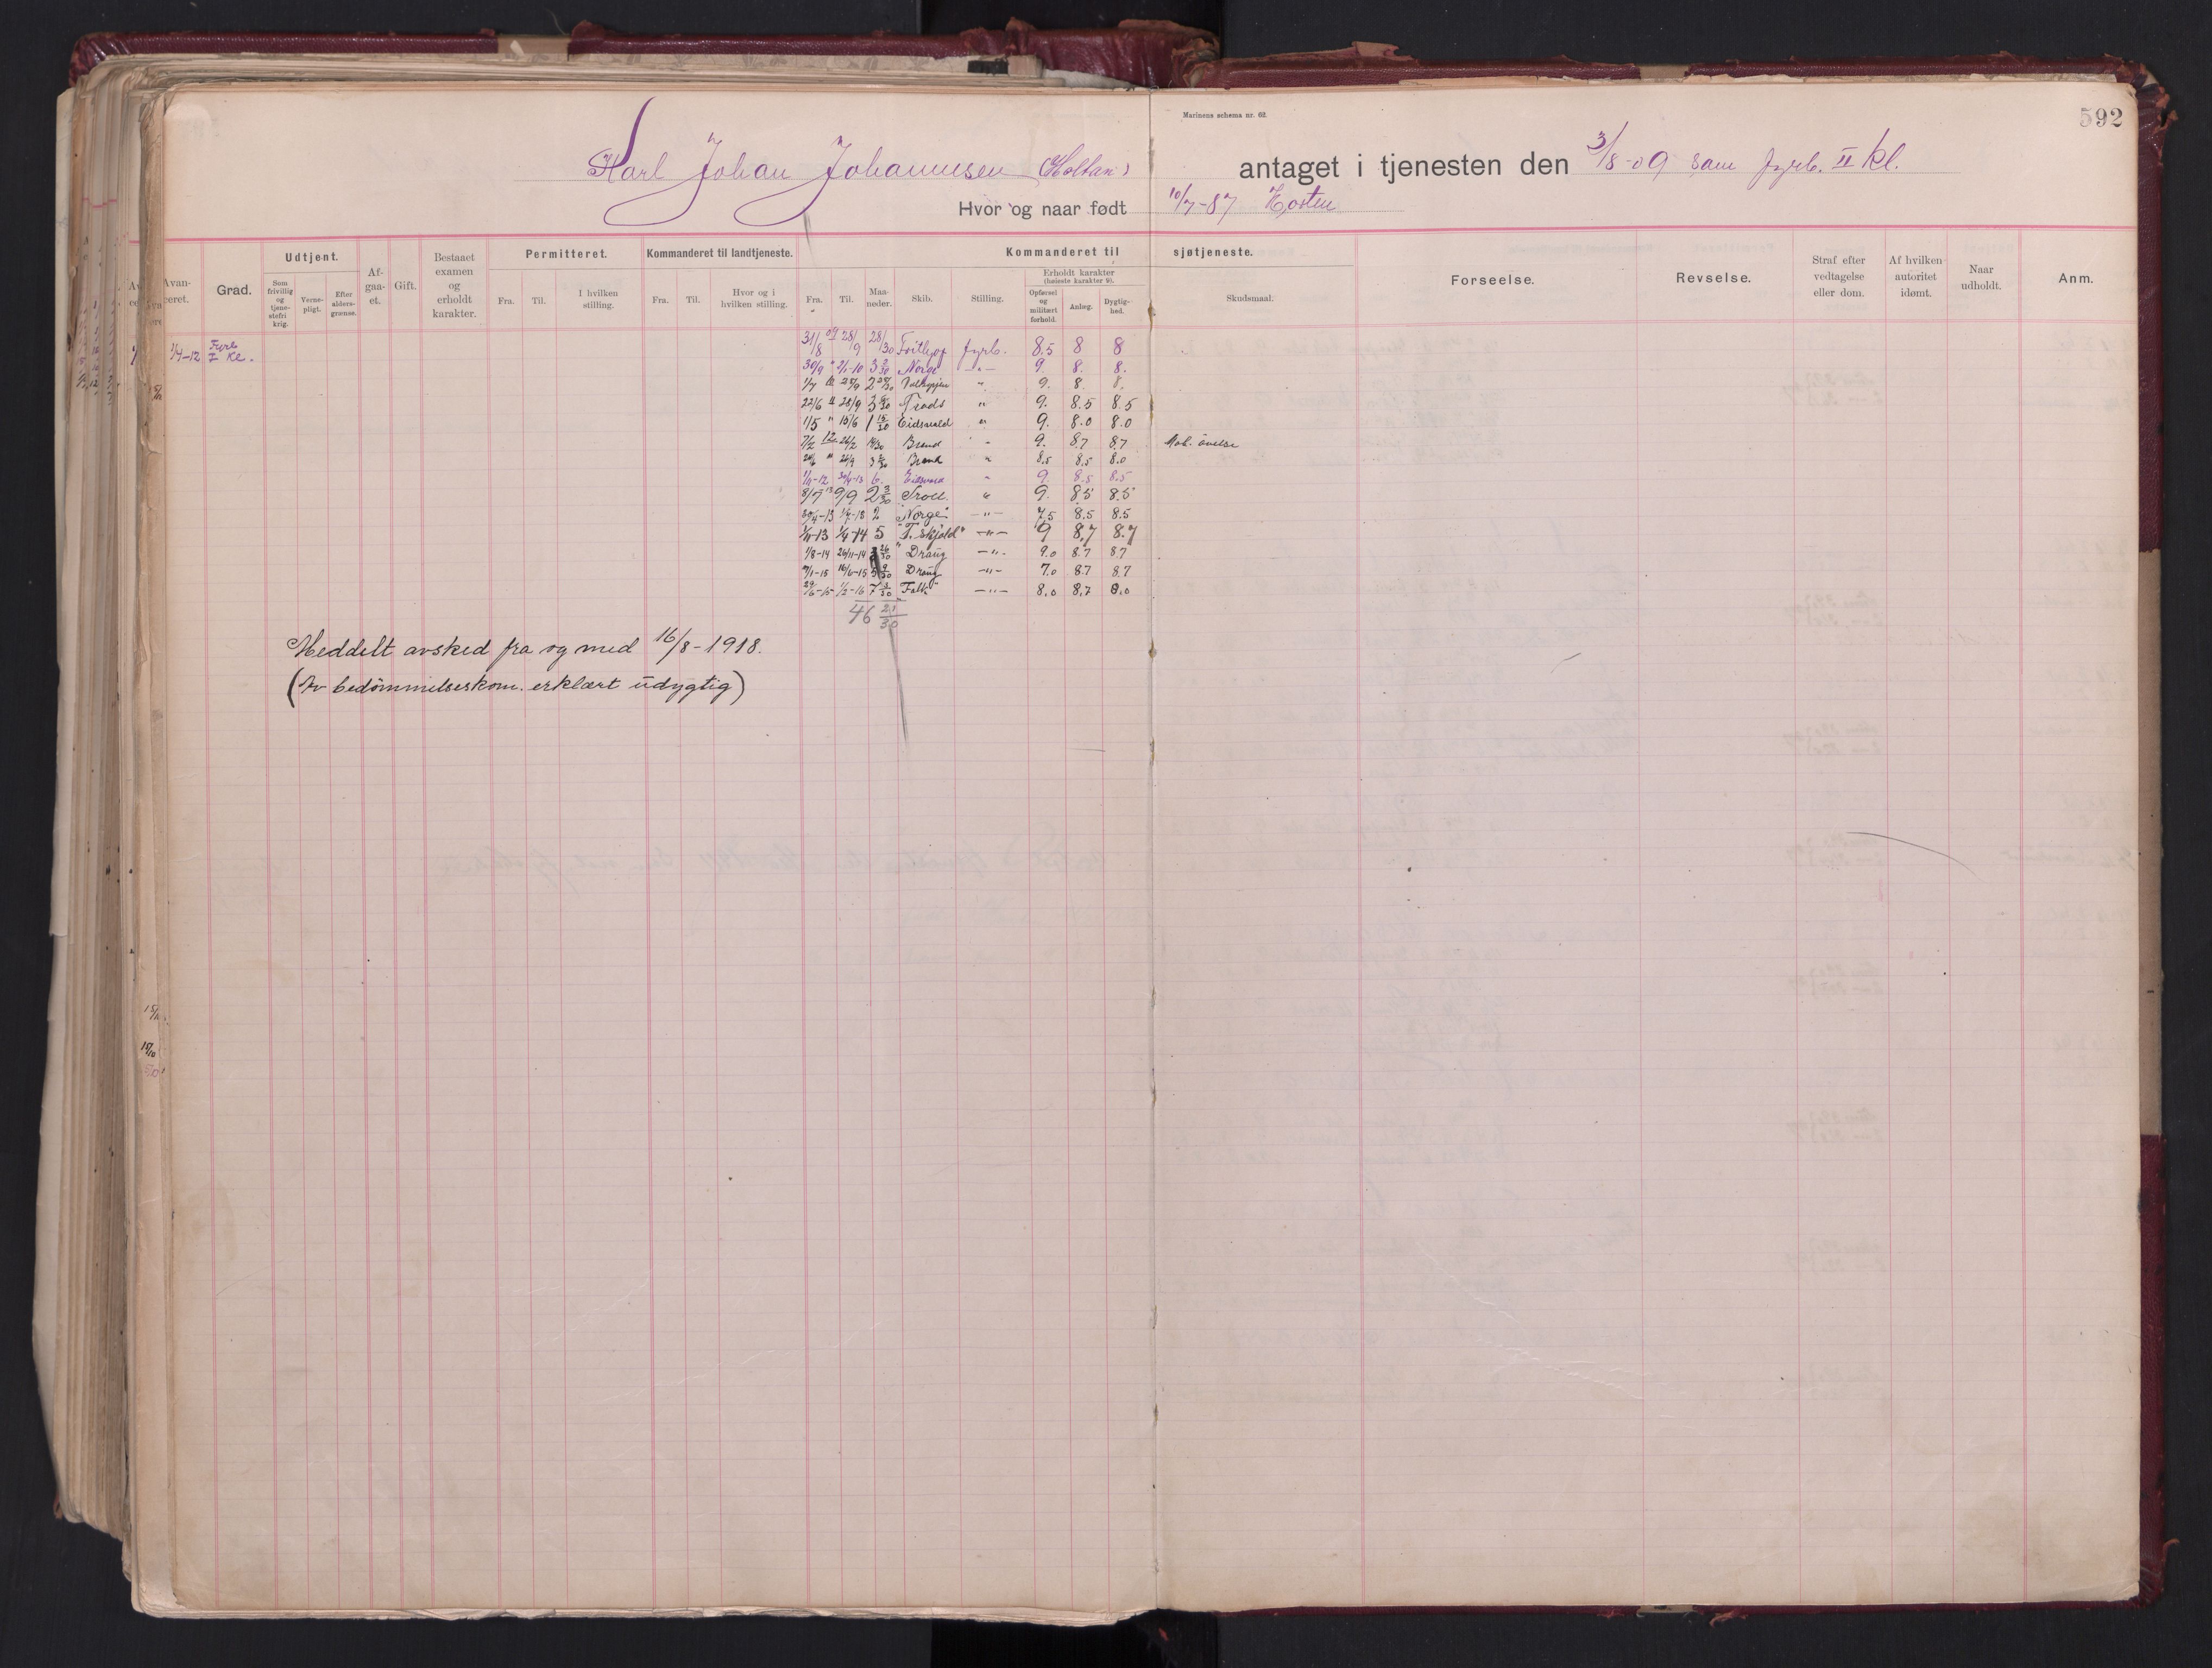 Marinens schema nr. 62.
592
Karl Johan Johannesen (Holtan) antaget i tjenesten den 3/8-09 som fyrb. II kl.
Hvor og naar født 10/7-87 Horten
Udtjent. Permitteret. Kommanderet til landtjeneste. Kommanderet til sjøtjeneste.
Avanceret. Grad. Som frivillig og tjenestefri krig. Vernepligt. Efter aldersgrænse. Afgaaet. Gift. Bestaaet examen og erholdt karakter. Fra. Til. I hvilken stilling. Fra. Til. Hvor og i hvilken stilling. Fra. Til. Maaneder. Skib. Stilling. Erholdt karakter (høieste karakter 9). Opførsel og militært forhold. Anlæg. Dygtighed. Skudsmaal. Forseelse. Revselse. Straf efter vedtagelse eller dom. Af hvilken autoritet idømt. Naar udholdt. Anm.
1/4-12 Fyrb I Kl.
31/8 09 28/9 28/30 Frithjof fyrb. 8.5 8 8
30/9 " 2/1-10 3 3/30 Norge -"- 9 8. 8.
1/7 28/9 2 28/30 Valkyrjen " 9. 8. 8.
22/6 11 28/9 3 Trods " 9. 8.5 8.5
1/5 " 15/6 1 15/30 Eidsvold " 9. 8.0 8.0
7/2 12 14/30 Brand " 9. 8.7 8.7 Mob. øvelse
" 26/9 3 Brand " 8.5 8.5 8.0
1/11-12 30/4-13 6. Eidsvold " 9. 8.5 8.5
8/7 13 9/9 2 3/30 Troll. " 9. 8.5 8.5
30/4-13 1/7-13 2 "Norge" -"- 7.5 8.5 8.5
1/11-13 1/4-14 5 "T. skjold" -"- 9 8,7 8.7
1/8-14 26/11-14 26/30 "Draug -"- 9.0 8.7 8.7
7/1-15 16/6-15 5 9/30 Draug -"- 7.0 8.7 8.7
29/6-15 1/2-16 7 3/30 Falk" -"- 8.0 8,7 8.0
46 21/30
Meddelt avsked fra og med 16/8-1918.
(Av bedömmelseskom. erklært udygtig)